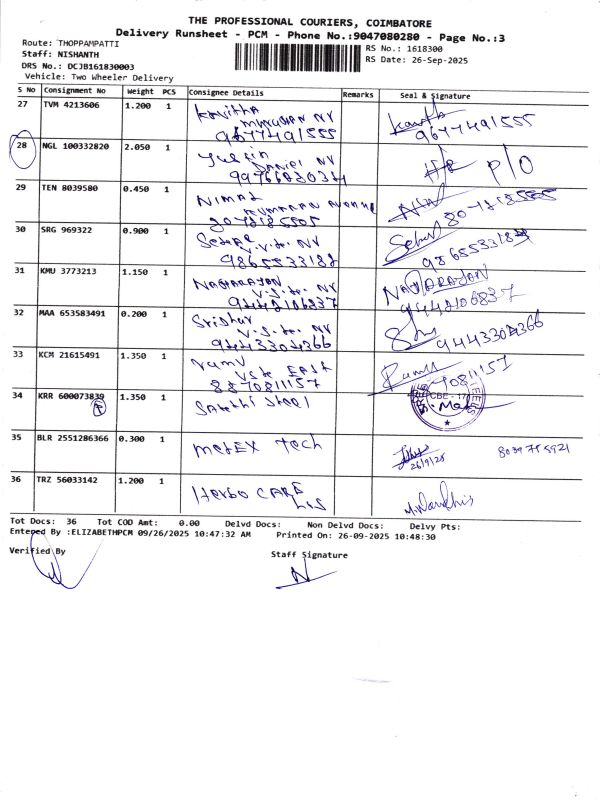 THE PROFESSIONAL COURIERS, COIMBATORE
Delivery Runsheet - PCM - Phone No.:9047080280 - Page No.:3
Route: THOPPAMPATTI
RS No.: 1618300
Staff: NISHANTH
RS Date: 26-Sep-2025
DRS No.: DCJB161830003
Vehicle: Two Wheeler Delivery
S No Consignment No Weight PCS Consignee Details Remarks Seal & Signature
27 TVM 4213606 1.200 1 Kavitha
Murugan NV
9677491555 9677491555
28 NGL 100332820 2.050 1
Daniel NV P/O
29 TEN 8039580 0.450 1 Nimal
Kumaran
30 SRG 969322 0.900 1 Sekar
V.V.to. NV
31 KMU 3773213 1.150 1 Nagarajan NAGARAJAN
V.S.to. NV
9442106837 9442106837
32 MAA 653583491 0.200 1 Sridhar
V.S.to. NV
9443304366 9443304366
33 KCM 21615491 1.350 1 Ramu Ramu
East
8870811157
34 KRR 600073839 1.350 1 Sakthi Steel
35 BLR 2551286366 0.300 1 Metex Tech
26/9/25
36 TRZ 56033142 1.200 1 Herbo CARE
Tot Docs: 36 Tot COD Amt: 0.00 Delvd Docs: Non Delvd Docs: Delvy Pts:
Entered By :ELIZABETHPCM 09/26/2025 10:47:32 AM Printed On: 26-09-2025 10:48:30
Verified By
Staff Signature
N